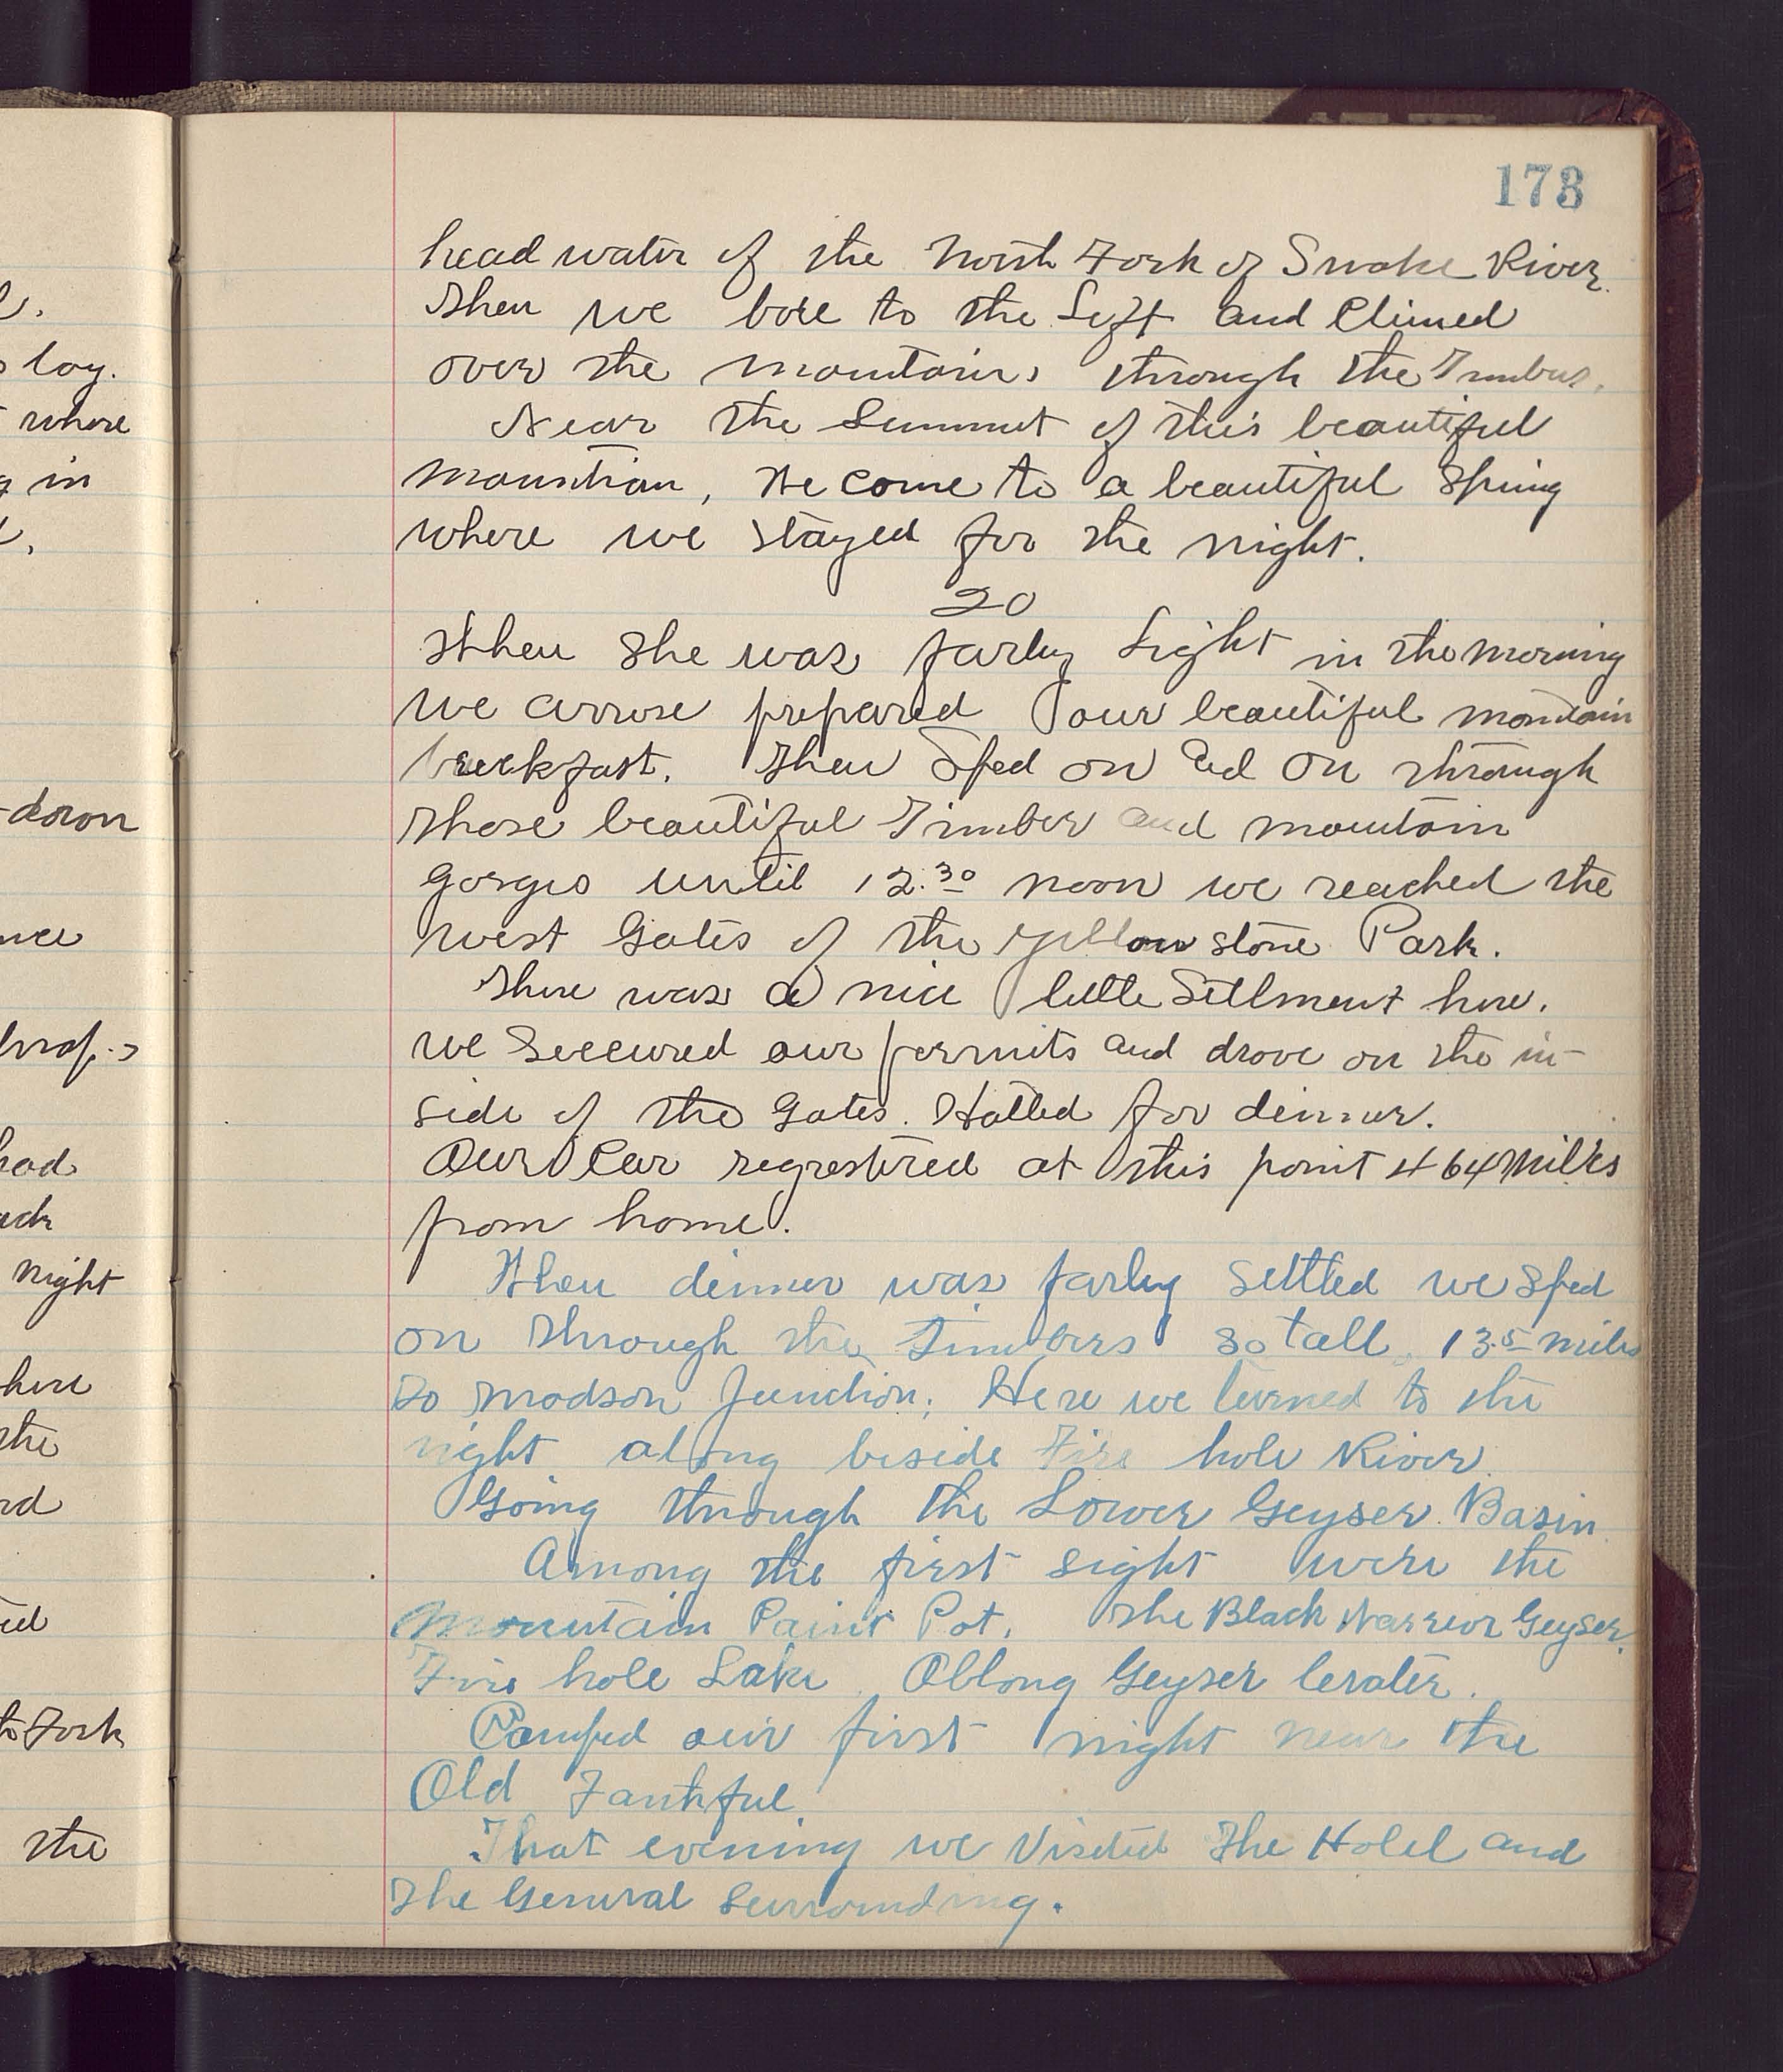 173
head water of the North Fork of Snake River.
Then we bore to the Left and Climed
over the mountains through the Timbers.
Near the Summut of this beautiful
mountian, We come to a beautiful Spring
where we stayed for the night.
20
When she was farley Light in the morning
we arrose prepared our beautiful mountain
breekfast. Then Sped on and on through
those beautiful Timber and mountain
gorges until 12.30 noon we reached the
west Gates of the yellow stone Park.
There was a nice little Setlment here.
we Seccured our permits and drove on the in-
side of the gates. Halted for dinner.
Our Car regrestered at this point 464 miles
from home.
When dinner was farley settled we sped
on through the timbers so tall, 13.5 miles
to Madson Junction; Here we turned to the
right along beside Fire hole River.
Going through the Lower Geyser Basin
Among the first sight were the
Mountain Paint Pot. The Black Warrior Geyser.
Fire hole Lake. Oblong Geyser Crater.
Camped our first night near the
Old Faithful.
That evening we Visited The Hotel and
The General Surrounding.
l.
lay.
where
in
down
had
night
here
the
to Fork
the